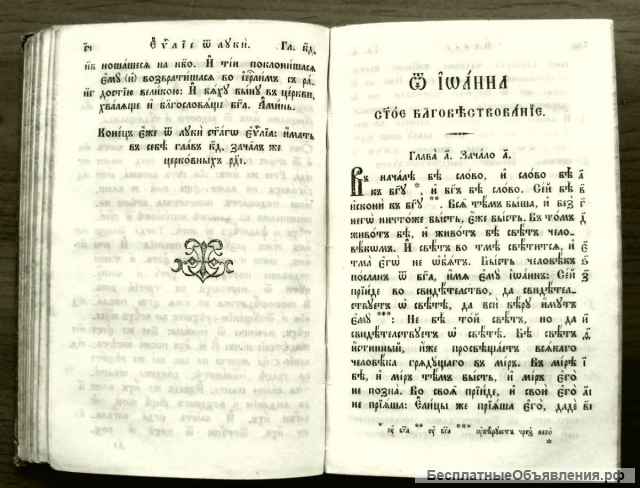 Є҆ѵⷢ҇лїе ѿ лꙋкѝ. Гл. к҃д.
н҃в ноша́шесѧ на нб҃о. И҆ ті́и поклони́шасѧ
є҆мꙋ̀ (и҆) возврати́шасѧ во і҆ерⷭ҇ли́мъ съ ра́-
н҃г достїю вели́кою: И҆ бѧ́хꙋ вы́нꙋ въ це́ркви,
хва́лѧще и҆ благословѧ́ще бг҃а. А҆ми́нь.
Коне́цъ є҆́же ѿ лꙋкѝ ст҃а́гѡ є҆ѵⷢ҇лїа: и҆́мать
въ себѣ̀ гла́въ к҃д. зача́лъ же
церко́вныхъ р҃ді.
Ѿ І҆ѡа́нна
ст҃о́е бл҃говѣствова́нїе.
Глава̀ а҃. Зача́ло а҃.
Въ нача́лѣ бѣ̀ сло́во, и҆ сло́во бѣ̀ а҃
къ бг҃ꙋ *. и҆ бг҃ъ бѣ̀ сло́во. Се́й бѣ̀ в҃
и҆сконѝ къ бг҃ꙋ **. Всѧ̑ тѣ́мъ бы́ша, и҆ без̾ г҃
негѡ̀ ничто́же бы́сть, є҆́же бы́сть. Въ то́мъ д҃
живо́тъ бѣ̀, и҆ живо́тъ бѣ̀ свѣ́тъ чело-
вѣ́кѡмъ. И҆ свѣ́тъ во тмѣ̀ свѣ́титсѧ, и҆ є҃
тма̀ є҆гѡ̀ не ѡ҆б̾ѧ́тъ. Бы́сть человѣ́къ ѕ҃
по́сланъ ѿ бг҃а, и҆́мѧ є҆мꙋ̀ і҆ѡа́ннъ: Се́й з҃
прїи́де во свидѣ́тельство, да свидѣ́тел-
ствꙋетъ ѡ҆ свѣ́тѣ, да всѝ вѣ́рꙋ и҆́мꙋтъ
є҆мꙋ̀ ***: Не бѣ̀ то́й свѣ́тъ, но да и҃
свидѣ́тельствꙋетъ ѡ҆ свѣ́тѣ. Бѣ̀ свѣ́тъ ѳ҃
и҆́стинный, и҆́же просвѣща́етъ всѧ́каго
человѣ́ка грѧдꙋ́щаго въ мі́ръ. Въ мі́рѣ і҃
бѣ̀, и҆ мі́ръ тѣ́мъ бы́сть, и҆ мі́ръ є҆гѡ̀
не позна̀. Во своѧ̑ прїи́де, и҆ своѝ є҆гѡ̀ а҃і
не прїѧ́ша: Є҆ли́цы же прїѧ́ша є҆го̀, дадѐ в҃і
* ᲂу҆ бг҃а ** ᲂу҆ бг҃а *** ᲂу҆вѣ́рꙋютъ чрез̾ него̀
БесплатныеОбъявления.рф